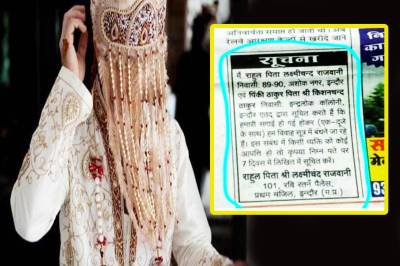 रेलवे आरक्षण केन्द्रों से खरीदे जाने
सूचना
मैं राहुल पिता लक्ष्मीचन्द राजवानी
निवासी: 89-90, अशोक नगर, इन्दौर
एवं पिंकी ठाकुर पिता श्री किशनचन्द
ठाकुर निवासी: इन्द्रलोक कॉलोनी,
इन्दौर एतद द्वारा सूचित करते हैं कि
हमारी सगाई हो गई होकर (एक-दूजे
के साथ) हम विवाह सूत्र में बंधने जा रहे
हैं। इस संबंध में किसी व्यक्ति को कोई
आपत्ति हो तो कृपया निम्न पते पर
7 दिवस में लिखित में सूचित करें।
राहुल पिता श्री लक्ष्मीचंद राजवानी
101, रवि रतन पैलेस,
प्रथम मंजिल, इन्दौर (म.प्र.)